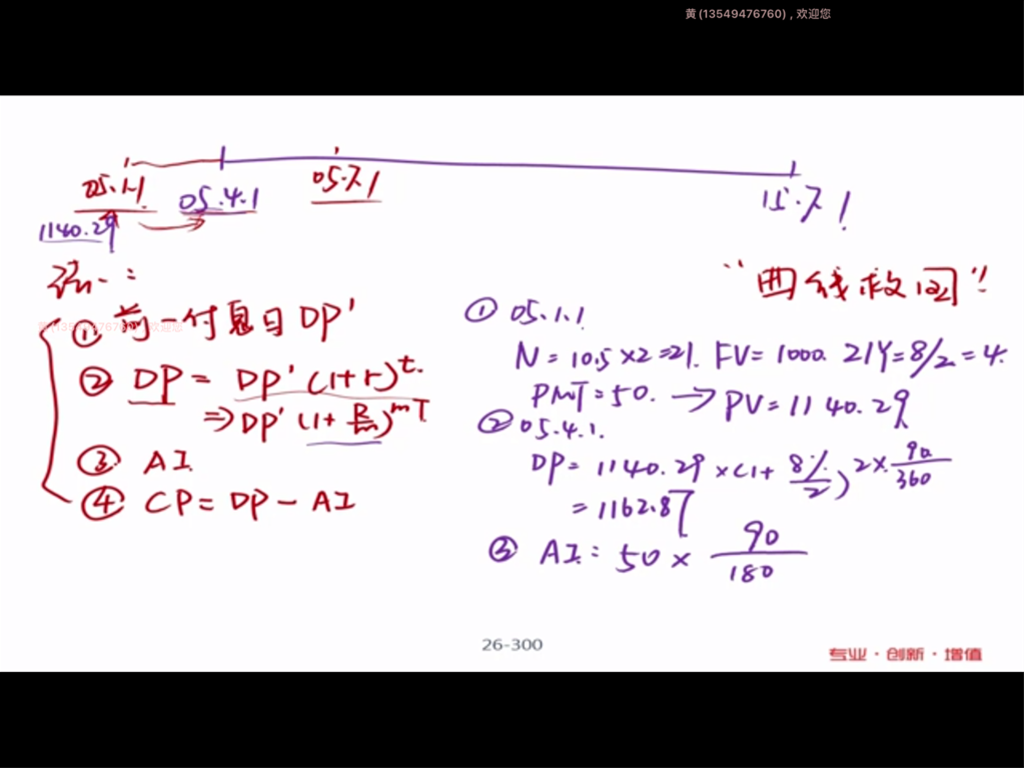 黄(13549476760),欢迎您
05.1.1
05.4.1
05.7.1
15.7.1
1140.29
法一:
"曲线救国"
① 前一付息日 DP'
② DP = DP'(1+r)^t.
⇒ DP'(1+R/m)^mT
③ AI.
④ CP = DP - AI
① 05.1.1
N = 10.5×2=21. FV= 1000. I/Y=8/2=4.
PMT=50. → PV=1140.29
② 05.4.1.
DP= 1140.29 ×(1+ 8%/2)^2×90/360
= 1162.87
③ AI: 50 × 90/180
26-300
专业·创新·增值